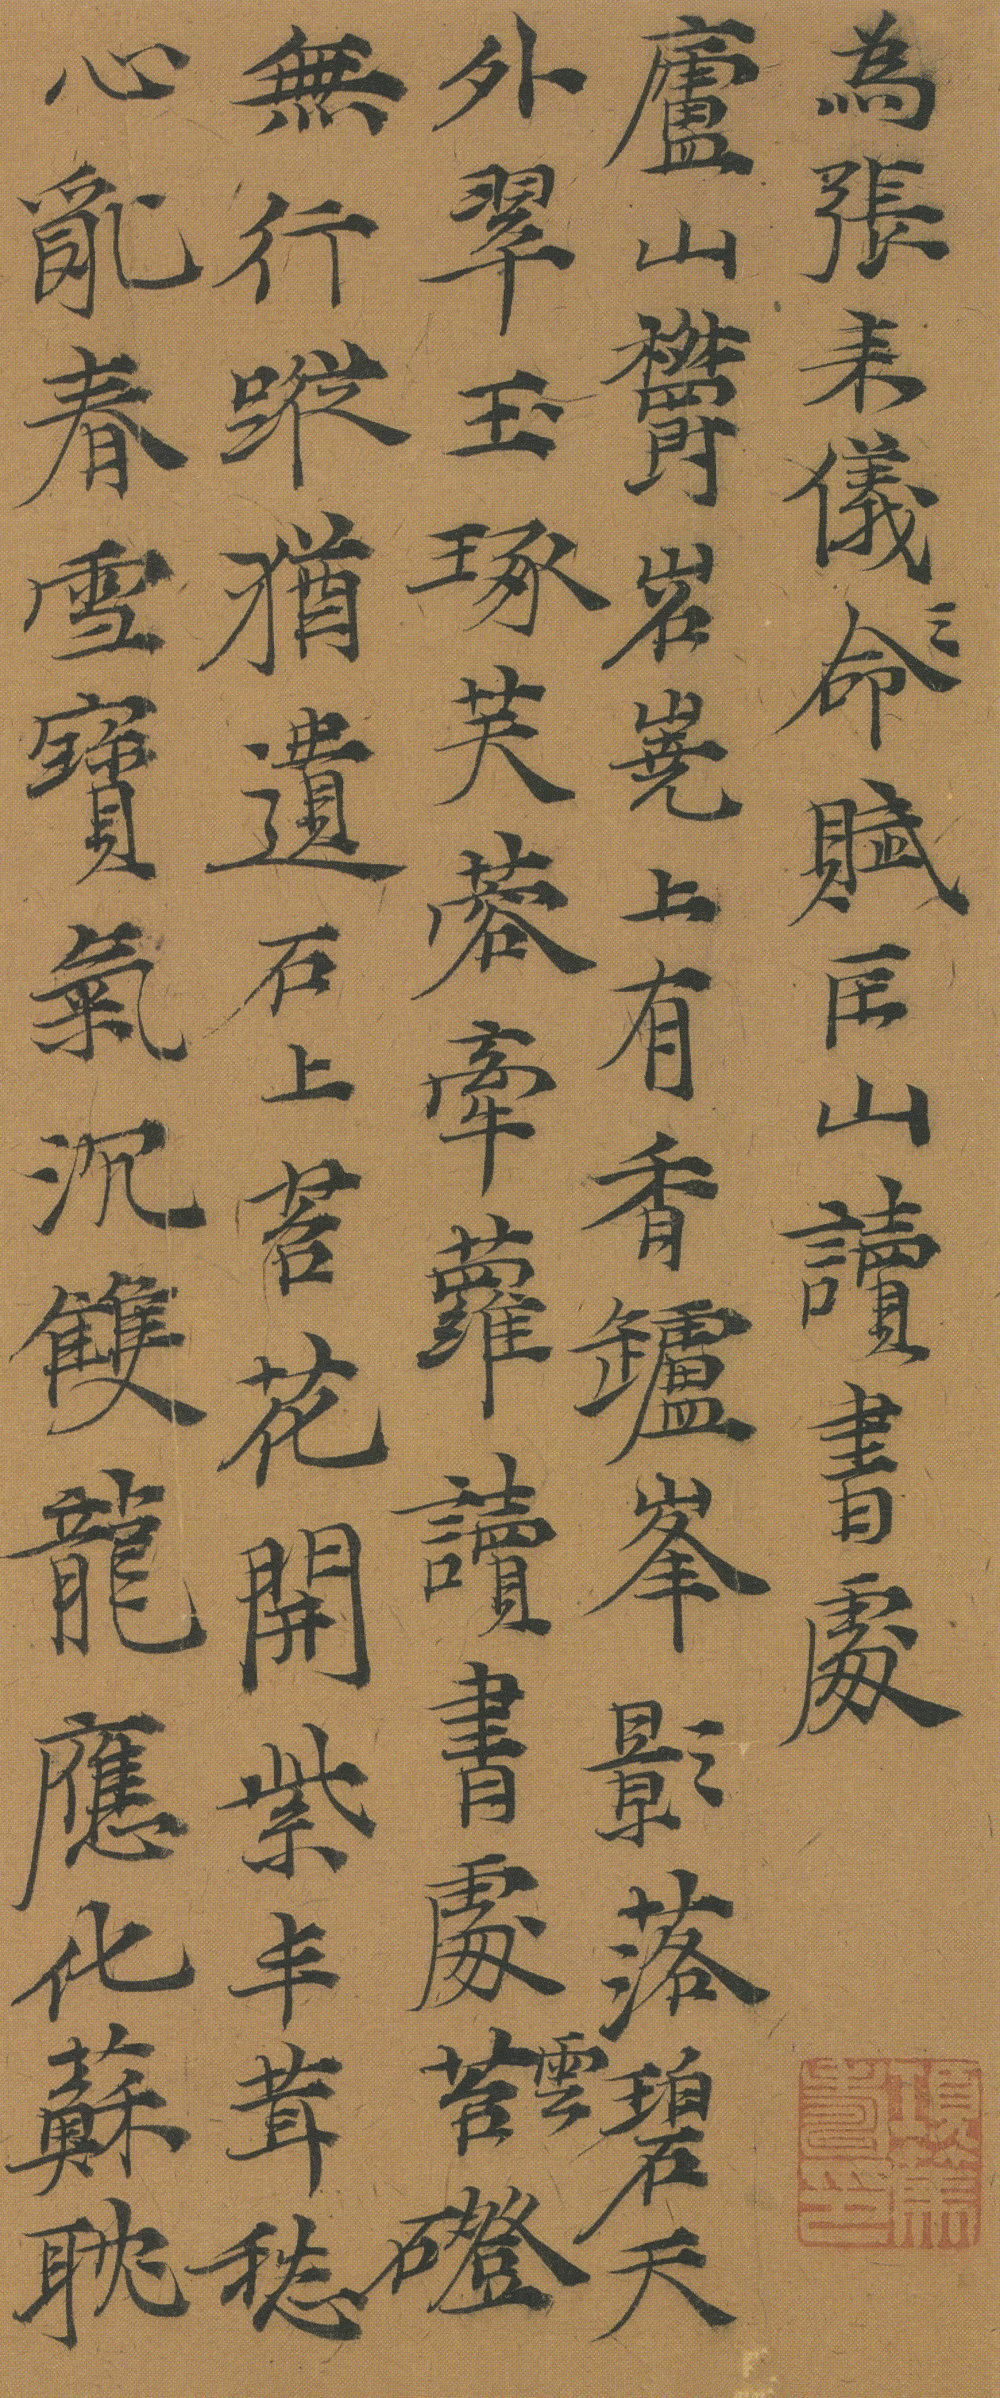 為張来儀命賦匡山讀書處
廬山欝岧嶤上有香罏峯影落碧天
外翠玉琢芙蓉牽蘿讀書處苔雲磴
無行蹤猶遺石上苔花開紫丰茸愁
心亂春雪寶氣沉雙龍應化蘇耽